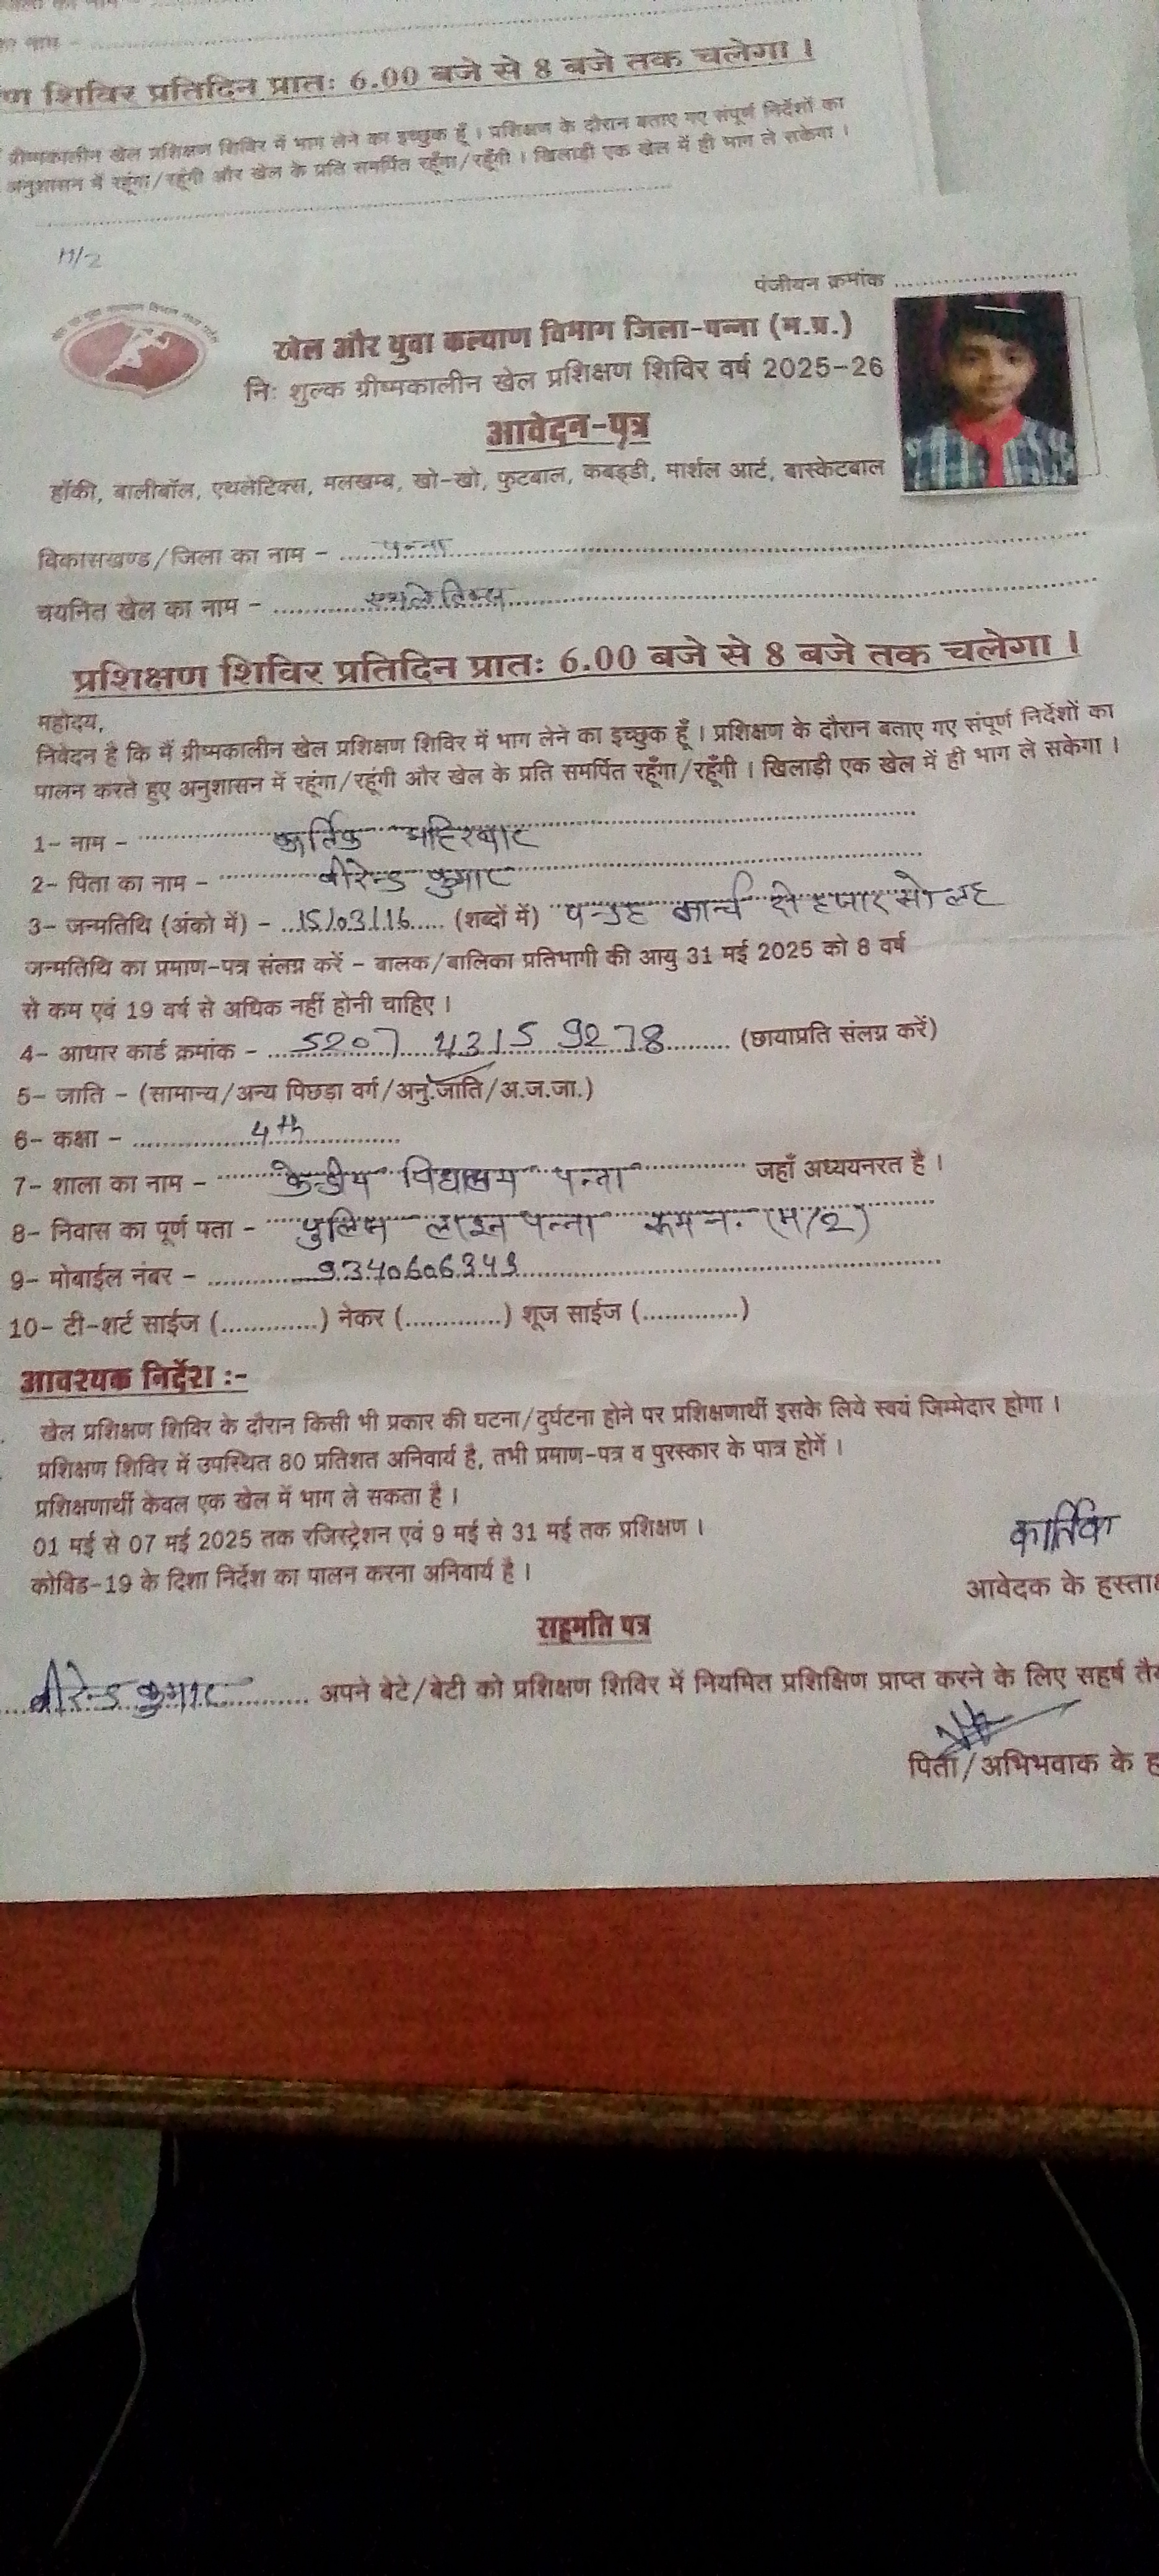 का नाम -
ण शिविर प्रतिदिन प्रातः 6.00 बजे से 8 बजे तक चलेगा ।
ग्रीष्मकालीन खेल प्रशिक्षण शिविर में भाग लेने का इच्छुक हूँ । प्रशिक्षण के दौरान बताए गए संपूर्ण निर्देशों का
अनुशासन में रहूंगा/रहूंगी और खेल के प्रति समर्पित रहूँगा/रहूँगी । खिलाड़ी एक खेल में ही भाग ले सकेगा ।
M/2
पंजीयन क्रमांक
खेल और युवा कल्याण विभाग जिला-पन्ना (म.प्र.)
निः शुल्क ग्रीष्मकालीन खेल प्रशिक्षण शिविर वर्ष 2025-26
आवेदन-पत्र
हॉकी, बालीबॉल, एथलेटिक्स, मलखम्ब, खो-खो, फुटबाल, कबड्डी, मार्शल आर्ट, बास्केटबाल
विकासखण्ड/जिला का नाम - पन्ना
चयनित खेल का नाम - एथलेटिक्स
प्रशिक्षण शिविर प्रतिदिन प्रातः 6.00 बजे से 8 बजे तक चलेगा ।
महोदय,
निवेदन है कि मैं ग्रीष्मकालीन खेल प्रशिक्षण शिविर में भाग लेने का इच्छुक हूँ । प्रशिक्षण के दौरान बताए गए संपूर्ण निर्देशों का
पालन करते हुए अनुशासन में रहूंगा/रहूंगी और खेल के प्रति समर्पित रहूँगा/रहूँगी । खिलाड़ी एक खेल में ही भाग ले सकेगा ।
1- नाम - कार्तिक
2- पिता का नाम - वीरेन्द्र कुमार
3- जन्मतिथि (अंको में) - 15/03/16 (शब्दों में) पन्द्रह मार्च दो हजार सोलह
जन्मतिथि का प्रमाण-पत्र संलग्न करें - बालक/बालिका प्रतिभागी की आयु 31 मई 2025 को 8 वर्ष
से कम एवं 19 वर्ष से अधिक नहीं होनी चाहिए ।
4- आधार कार्ड क्रमांक - 5207 4315 9278 (छायाप्रति संलग्न करें)
5- जाति - (सामान्य/अन्य पिछड़ा वर्ग/अनु.जाति/अ.ज.जा.)
6- कक्षा - 4th
7- शाला का नाम - केन्द्रीय विद्यालय पन्ना जहाँ अध्ययनरत है ।
8- निवास का पूर्ण पता - पुलिस लाइन पन्ना रूम न. (M/2)
9- मोबाईल नंबर - 9340606349
10- टी-शर्ट साईज (.............) नेकर (.............) शूज साईज (.............)
आवश्यक निर्देश :-
खेल प्रशिक्षण शिविर के दौरान किसी भी प्रकार की घटना/दुर्घटना होने पर प्रशिक्षणार्थी इसके लिये स्वयं जिम्मेदार होगा ।
प्रशिक्षण शिविर में उपस्थित 80 प्रतिशत अनिवार्य है, तभी प्रमाण-पत्र व पुरस्कार के पात्र होगें ।
प्रशिक्षणार्थी केवल एक खेल में भाग ले सकता है ।
01 मई से 07 मई 2025 तक रजिस्ट्रेशन एवं 9 मई से 31 मई तक प्रशिक्षण ।
कोविड-19 के दिशा निर्देश का पालन करना अनिवार्य है ।
कार्तिक
आवेदक के हस्ता
सहमति पत्र
वीरेन्द्र कुमार अपने बेटे/बेटी को प्रशिक्षण शिविर में नियमित प्रशिक्षिण प्राप्त करने के लिए सहर्ष तै
पिता/अभिभवाक के ह